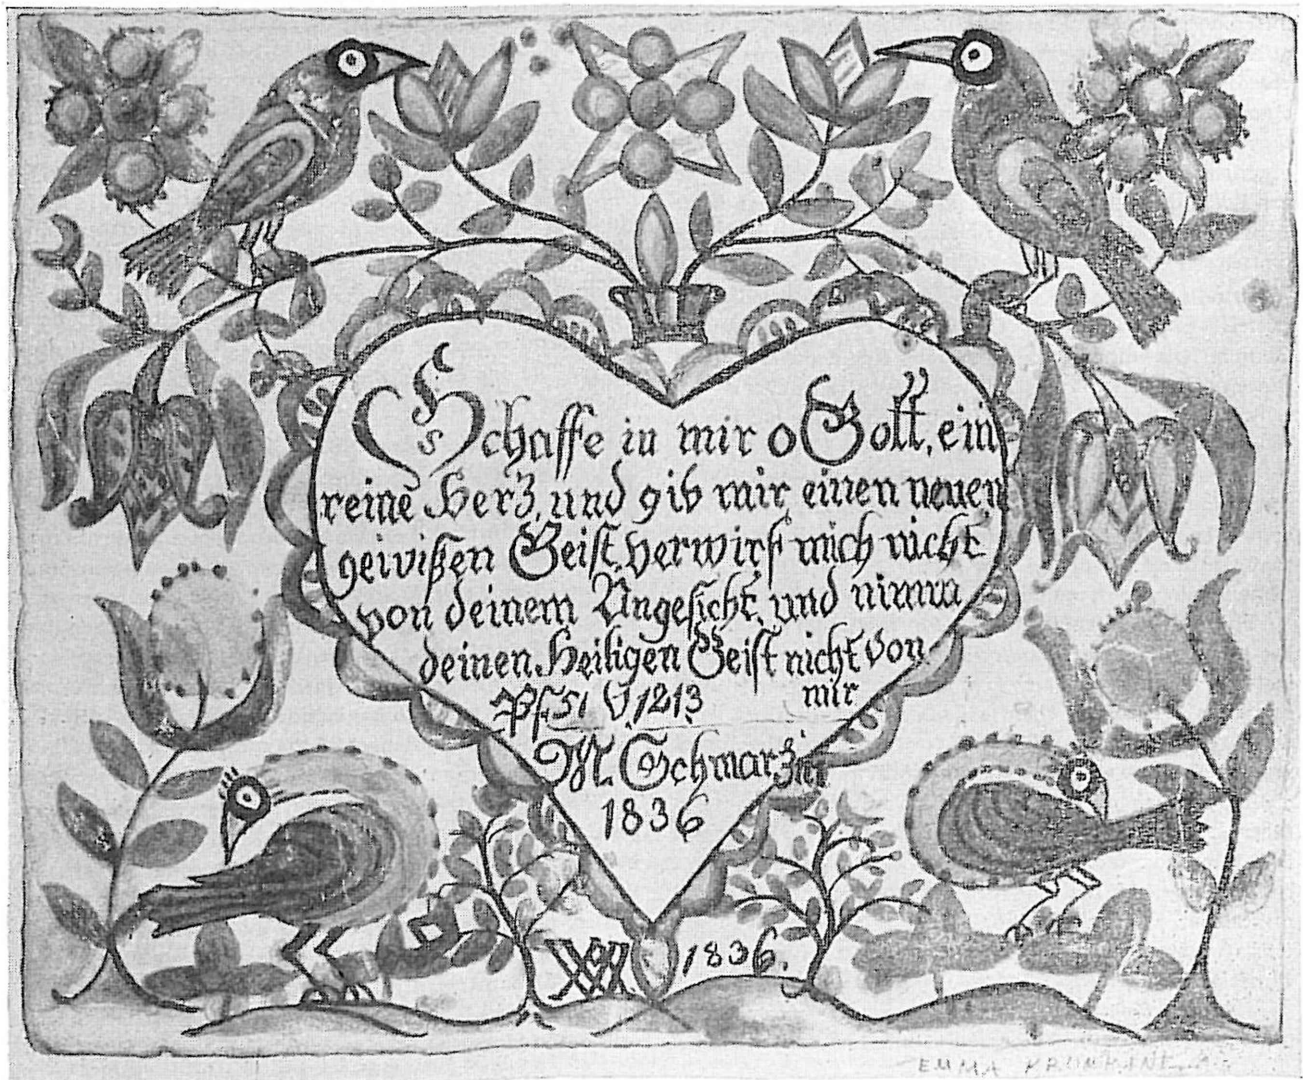 Schaffe in mir o Gott, ein
reine Herz, und gib mir einen neuen
gewißen Geist, verwirf mich nicht
von deinem Angesicht, und nimm
deinen Heiligen Geist nicht von
mir
Psf 51 V. 1213
M. Schwarzin
1836
1836.
EMMA